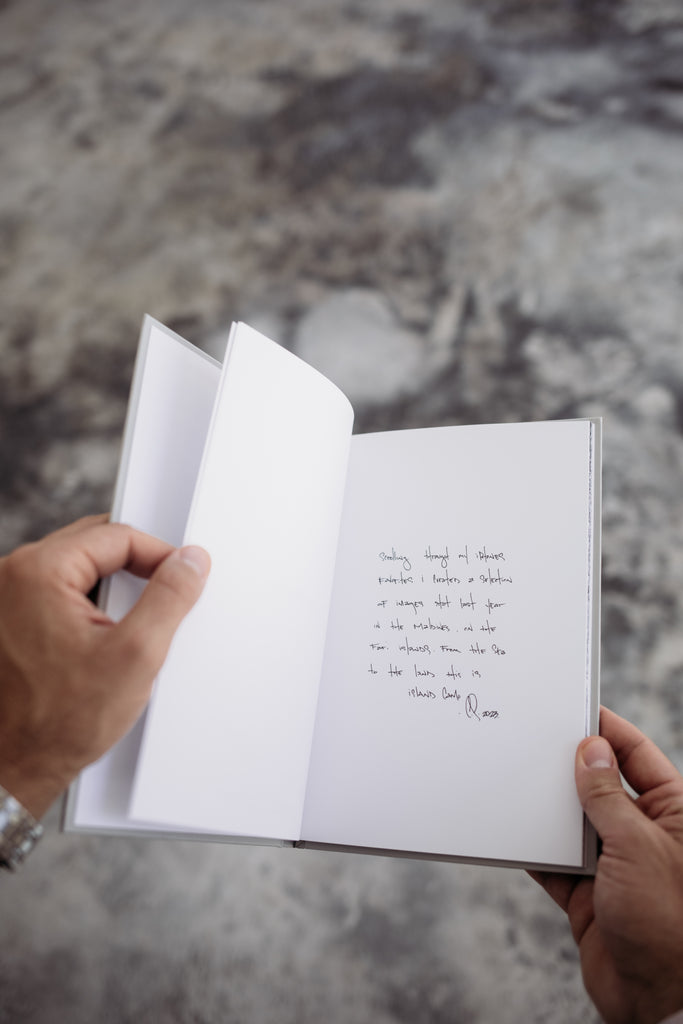 scrolling through my iphones
favorites i created a selection
of images shot last year
in the Maldives. on the
Fari islands. From the sea
to the lands this is
island
2023